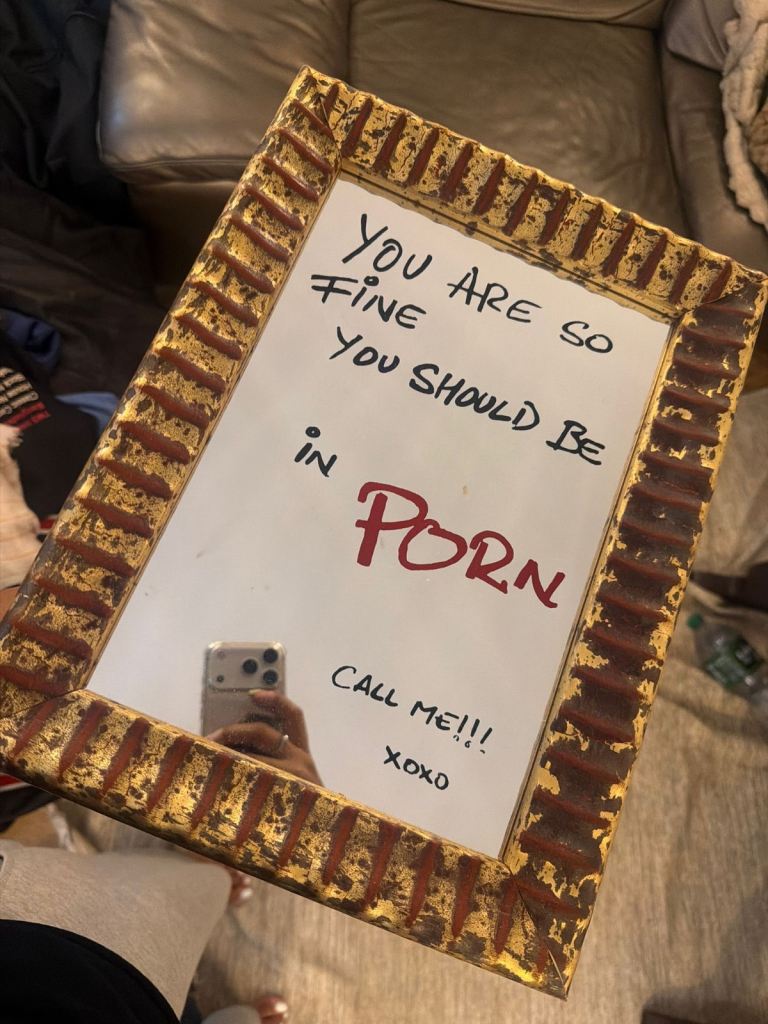 YOU ARE SO
FiNE
YOU SHOULD BE
iN
PORN
CALL ME!!!
XOXO